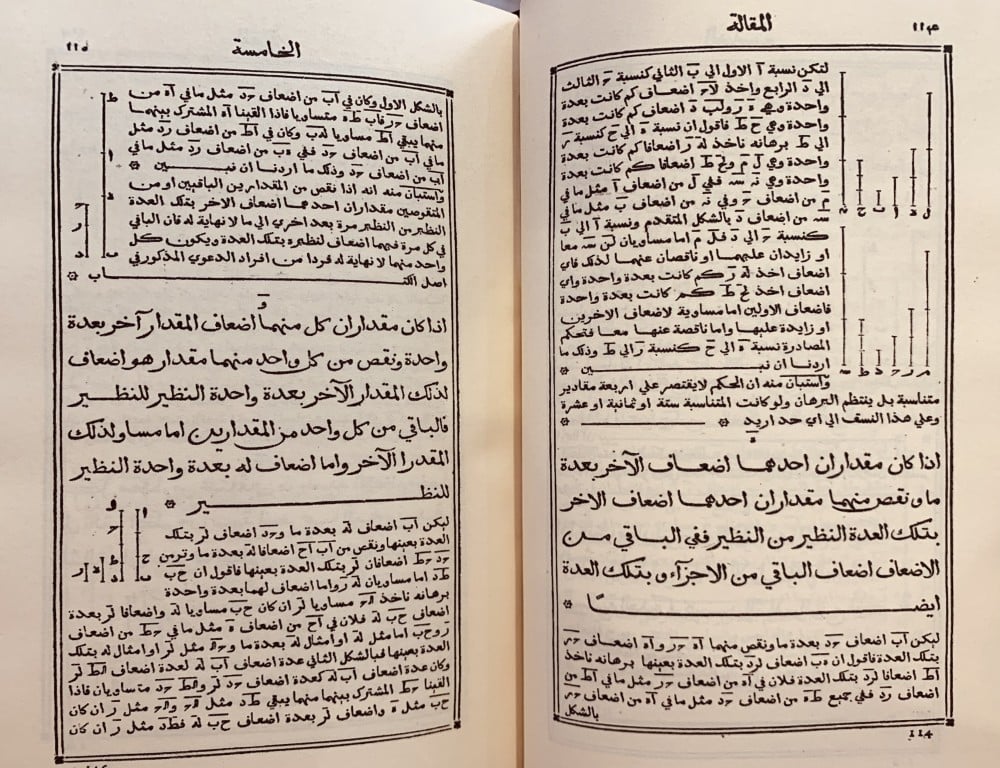 المقالة
١١٤
لتكن نسبة آ الاول الي ب الثاني كنسبة ج الثالث
الي د الرابع واخذ لآ ج اضعاف كم كانت بعدة
واحدة وهي ه ز ولب د اضعاف كم كانت بعدة
واحدة وهي ح ط فاقول ان نسبة ه الي ح كنسبة ز
الي ط برهانه ناخذ له ز اضعافا كم كانت بعدة
واحدة وهي ل م ولح ط اضعافا كم كانت بعدة
واحدة وهي ن س ففي ل من اضعاف آ مثل ما في
م من اضعاف ج وفي ن من اضعاف ب مثل ما في
س من اضعاف د بالشكل المتقدم ونسبة آ الي ب
كنسبة ج الي د فل م اما مساويان لن س معا
او زايدان عليهما او ناقصان عنهما لذلك فاي
اضعاف اخذ له ز كم كانت بعدة واحدة واي
اضعاف اخذ لح ط كم كانت بعدة واحدة
فاضعاف الاولين اما مساوية لاضعاف الاخرين
او زايدة عليها واما ناقصة عنها معا فتحكم
المصادرة نسبة ه الي ح كنسبة ز الي ط وذلك ما
اردنا ان نبين
واستبان منه ان الحكم لا يقتصر علي اربعة مقادير
متناسبة بل ينتظم البرهان ولو كانت المتناسبة ستة او ثمانية او عشرة
وعلي هذا النسق الي اي حد اريد
ه
اذا كان مقداران احدهما اضعاف الآخر بعدة
ما ونقص منهما مقداران احدهما اضعاف الاخر
بتلك العدة النظير من النظير ففي الباقي من
الاضعاف اضعاف الباقي من الاجزآء بتلك العدة
ايضا
ليكن آب اضعاف جد بعدة ما ونقص منهما آه جر وآه اضعاف جر
بتلك العدة فاقول ان ه ب اضعاف لرد بتلك العدة بعينها برهانه ناخذ
آط اضعافا لرد بتلك العدة فلان في آه من اضعاف جر مثل ما في آط من
اضعاف رد ففي جميع طه من اضعاف جد مثل ما في آه من اضعاف جر
بالشكل
114
الخامسة
١١٥
بالشكل الاول وكان في آب من اضعاف جد مثل ما في آه من
اضعاف جر فآب طه متساويا فاذا القينا آه المشترك بينهما
منهما يبقي آط مساويا له ب وكان في آط من اضعاف رد مثل
ما في آب من اضعاف جد ففي ه ب من اضعاف رد مثل ما في
آب من اضعاف جد وذلك ما اردنا ان نبين
واستبان منه انه اذا نقص من المقدارين الباقيين او من
المنقوصين مقداران احدهما اضعاف الاخر بتلك العدة
النظير من النظير مرة بعد اخري الي ما لا نهاية له فان الباقي
في كل مرة فيهما اضعاف لنظيره بتلك العدة ويكون كل
واحد منهما لا نهاية له فردا من افراد الدعوي المذكور في
اصل الكتاب
و
اذا كان مقداران كل منهما اضعاف المقدار آخر بعدة
واحدة ونقص من كل واحد منهما مقدار هو اضعاف
لذلك المقدار الآخر بعدة واحدة النظير للنظير
فالباقي من كل واحد من المقدارين اما مساو لذلك
المقدرا الآخر واما اضعاف له بعدة واحدة النظير
للنظير
ليكن آب اضعاف له بعدة ما وجد اضعاف لر بتلك
العدة بعينها ونقص من آب آح اضعافا له بعدة ما ومن
جد جط اضعافان لر بتلك العدة بعينها فاقول ان حب
طد اما مساويان له ر واما اضعاف لهما بعدة واحدة
برهانه ناخذ مساويا لر ان كان حب مساويا له واضعافا لر بعدة
اضعاف حب له فلان في آح من اضعاف ه مثل ما في جط من اضعاف
ر وحب اما مثل له او امثال له بعدة ما مثل لر او امثال له بتلك
العدة بعينها فبالشكل الثاني عدة اضعاف آب له لعدة اضعاف لر
وكان عدة اضعاف آب له كعدة اضعاف جد لر جد متساويان فاذا
القينا جط المشترك بينهما منهما يبقي طد مثل مثل ر ان كان
حب مثل ه واضعاف لر بعدة اضعاف حب له فطد مثل ر ان كان